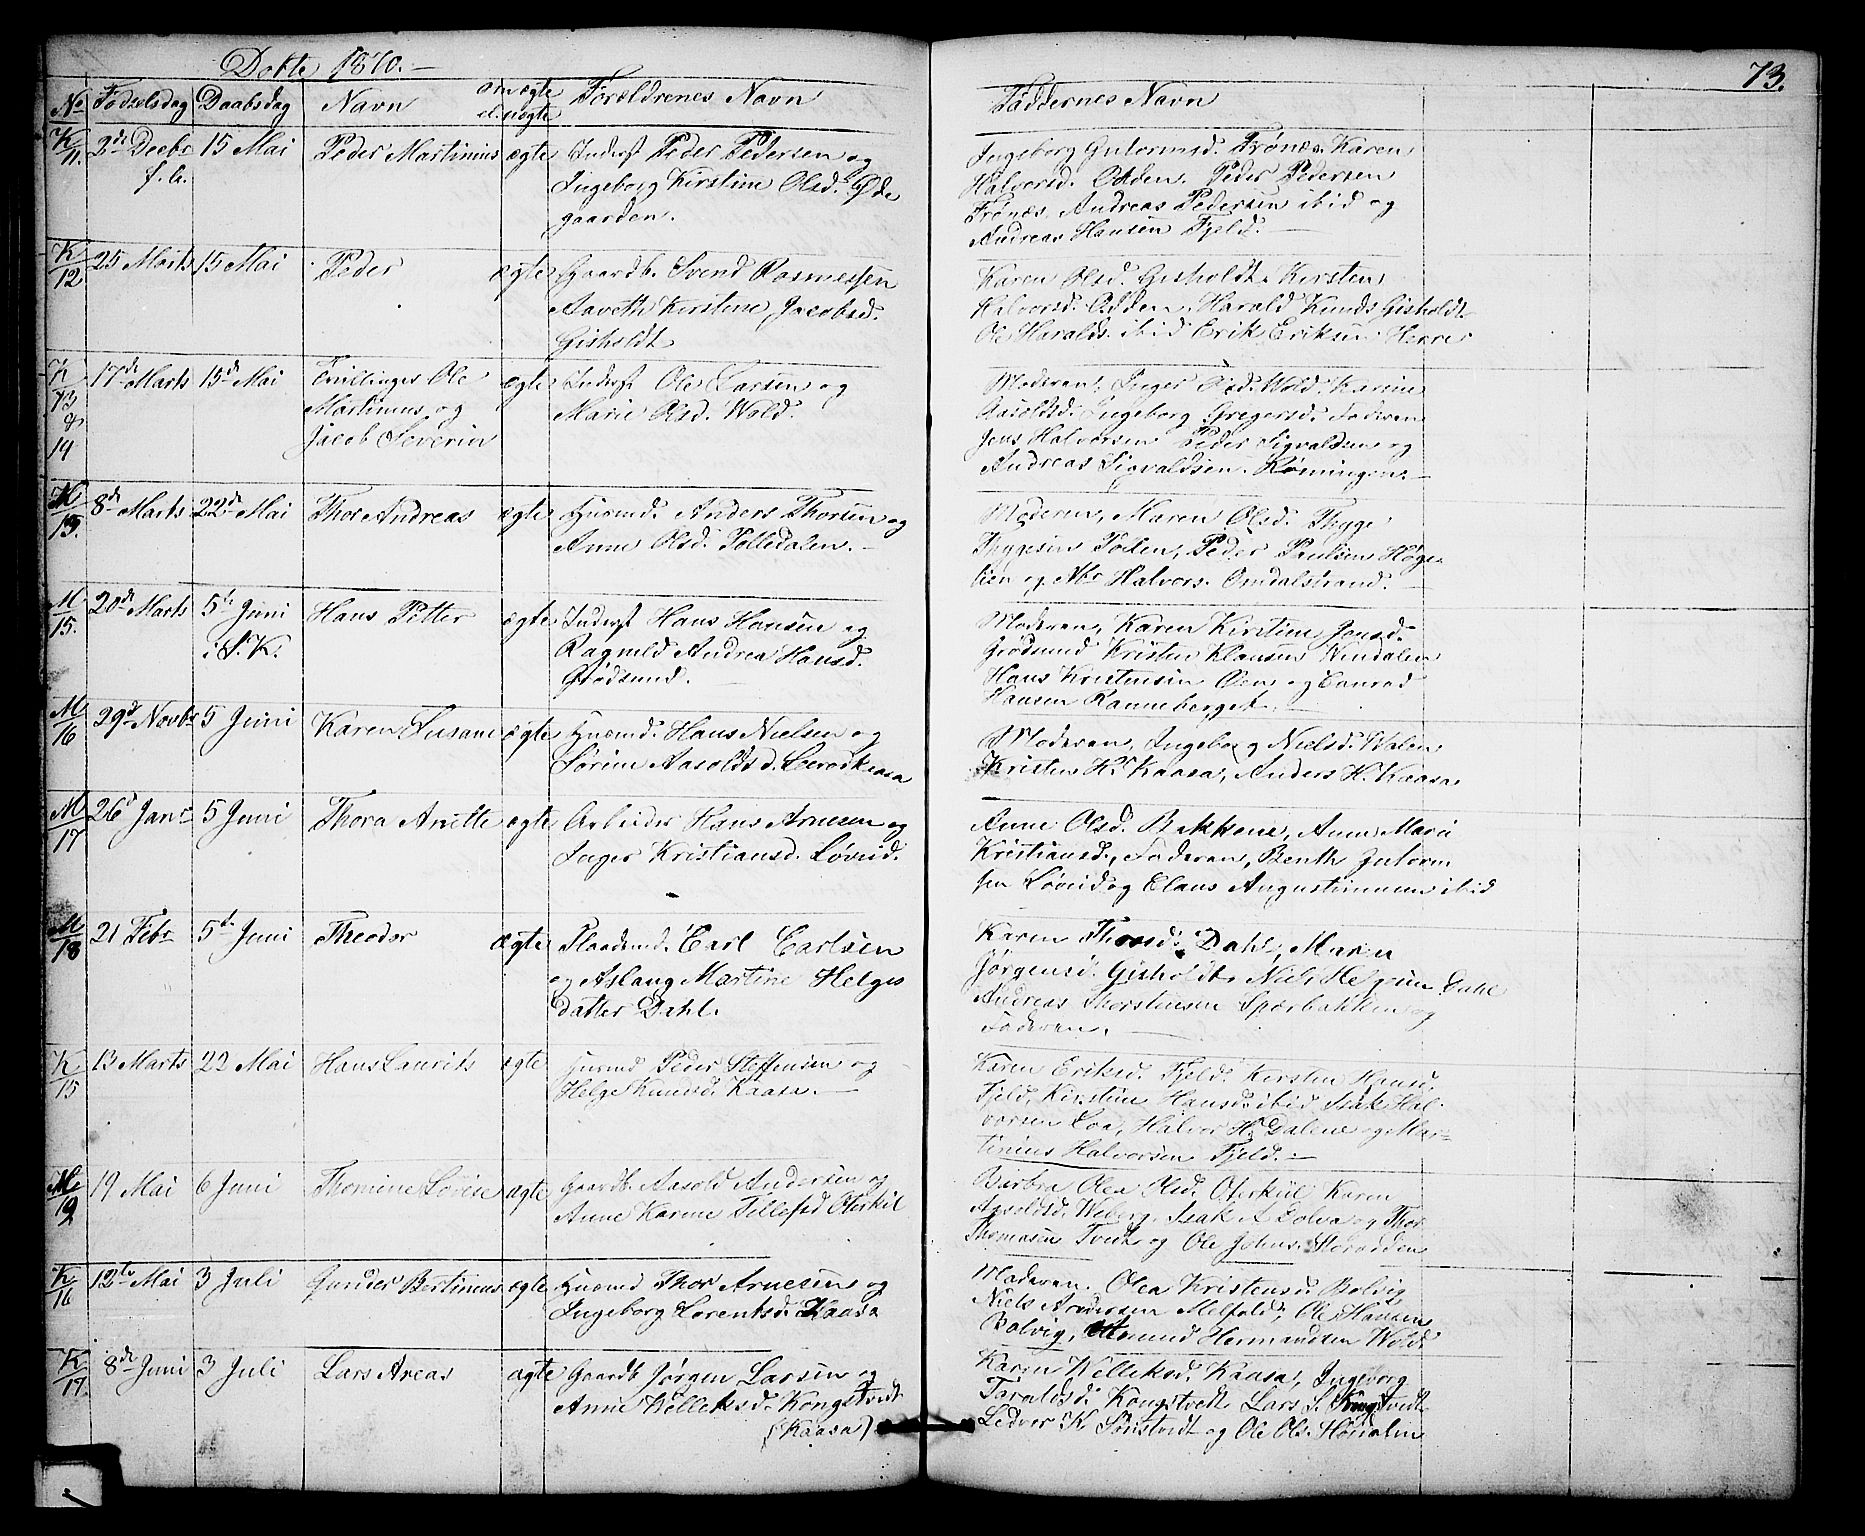 Døbte 1870.
73.
No Fødselsdag Daabsdag Navn om ægte el. uægte Forældrenes Navn Faddernes Navn
K 11. 2de Decbr f. A. 15 Mai Peder Martinius ægte Inderst Peder Pedersen og
Ingeborg Kirstine Olsd. Øde
gaarden.
Ingeborg Gutormsd. Frönæs Karen
Halvorsd. Odden. Peder Pedersen
Frönæs, Andreas Pedersen ibid og
Andreas Hansen Fjeld.
K 12 25 Marts 15 Mai Peder ægte Gaardb. Svend Rasmussen
Kirstine Jacobsd.
Gisholdt
Karen Olsd. Gisholdt Kirsten
Halvorsd. Odden, Harald Knuds Gisholdt
Ole Haralds. ibid Erik Eriksen Herre
K 13 & 14 17de Marts 15de Mai Tvillinger Ole
Martinus og
Jacob Severin
ægte Inderst Ole Larsen og
Marie Olsd. Wold.
Moderen, Inger Olsd. Wold. Karine
Aasoldsd. Ingeborg Gregersd. Faderen
Jens Halvorsen Peder Sigvaldsen og
Andreas Sigvaldsen Rönningen.
13. 8de Marts 22de Mai Thor Andreas ægte Husmd. Anders Thorsen og
Anne Olsd. Tolledalen.
Moderen, Maren Olsd. Thyge
Thygesen Peder Paulsen Høge
lien og Halvors. Omdalstrand.
M 15. 20de Marts 5te Juni i S. K. Hans Petter ægte Inderst Hans Hansen og
Ragnild Andrea Hansd.
Grödsund.
Moderen, Karen Kirstine Jensd.
Grödsund Kristen Klausen
Hans Kristensen Oen og Conrad
Hansen Ranneberget.
M 16 29de Novbr 5 Juni Karen Susane ægte Husmd. Hans Nielsen og
Sörine Aasoldsd.
Moderen, Ingeborg Nielsd. Walen
Kristen Hs Kaasa, Anders H. Kaasa
M 17 26d Janr 5 Juni Thora Anette ægte Arbeider Hans Arnesen og
Inger Kristiansd. Løveid.
Anne Olsd. Bakkene, Anne Marie
Kristiansd., Faderen, Benth Gutorm
sen Løveid og Claus Augustinusen ibid
M 18 21 Febr 5te Juni Theodor ægte Pladsmd. Carl Carlsen
og Aslaug Martine Helges
datter Dahl.
Karen Thorsd. Dahl, Maren
Jørgensd. Gisholdt, Niels Helgesen Dahl
Andreas Thorstensen Sporbakken og
Faderen.
K 15 13 Marts 22 Mai Hans Laurits ægte Husmd Peder Steffensen og
Helge Knudsd. Kaasa.
Karen Eriksd. Fjeld. Kirsten Hansd.
Fjeld, Kirstine Hansd. ibid Isak Hal
vorsen Loa, Halvor H. Dalene og Mar
tinius Halvorsen Fjeld.
M 19 19 Mai 6 Juni Thomine Lovise ægte Gaardb. Aasold Andersen og
Anne Karine Tillefsd Oterkil
Barbra Olea Olsd. Oterkil Karen
Aasoldsd. Weberg. Isak A Dolva og Thor
Thomasen Tvedt og Ole Johns.
K 16 12te Mai 3 Juli Gunder Bertinius ægte Husmd Thor Arnesen og
Ingeborg Lorentsd. Kaasa
Moderen. Olea Kristensd. Bolvig
Niels Andersen Melfald, Ole Hansen
Bolvig, Amund Hermandsen Wold.
K 17. 8de Juni 3 Juli Lars Areas ægte Gaardb Jørgen Larsen og
Anne Welleksd. Kongstvedt
(Kaasa)
Karen Welleksd. Kaasa, Ingeborg
Taraldsd. Kongstvedt Lars S. Kongstvedt
Ledvor K Sönstvedt og Ole Ols.